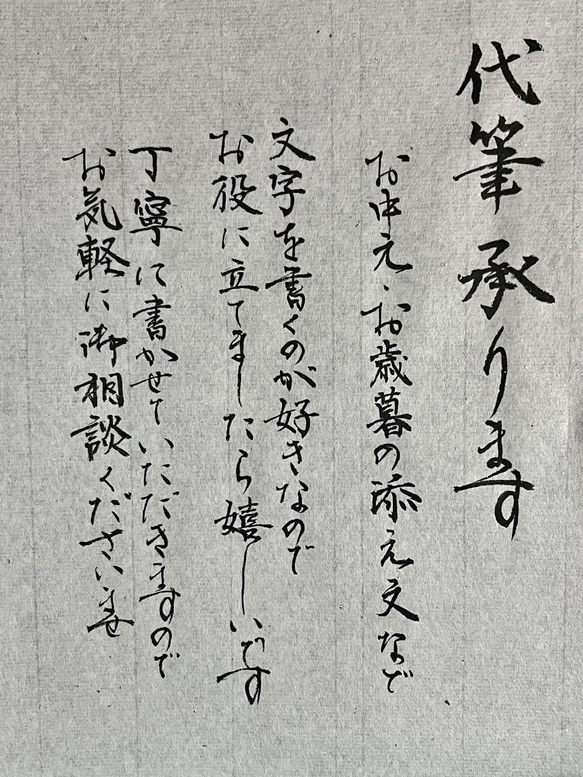 代筆承ります
お中元・お歳暮の添え文など
文字を書くのが好きなので
お役に立てましたら嬉しいです
丁寧に書かせていただきますので
お気軽に御相談くださいませ